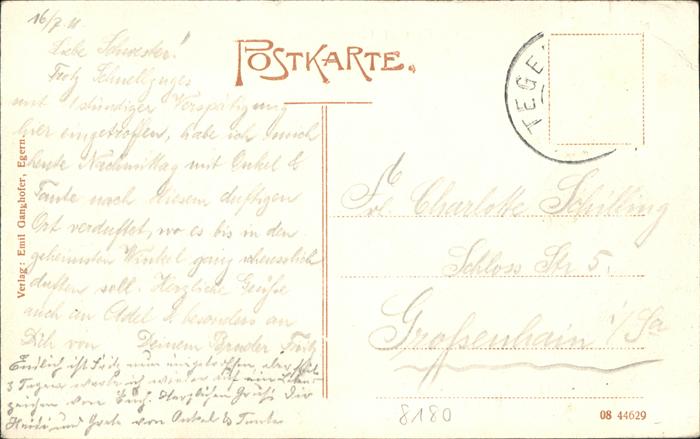 16/7 11
Liebe Schwester!
Trotz Schnellzuges
mit 1stündiger Verspätigung
hier eingetroffen, habe ich mich
heute Nachmittag mit Onkel &
Tante nach diesem duftigen
Ort verduftet, wo es bis in den
geheimsten Winkel ganz scheusslich
duften soll. Herzliche Grüße
auch an Adel &. besonders an
Dich von Deinem Bruder Fritz
Endlich ist Fritz nun eingetroffen, der
3 Tagen
zeichen von Euch. Herzlichen Gruß Dir
Heidi und Grete von Onkel & Tante
POSTKARTE.
TEGE
Frl Charlotte Schilling
Schloss Str 5.
Großenhain i/Sa
Verlag: Emil Ganghofer, Egern.
8180
08 44629